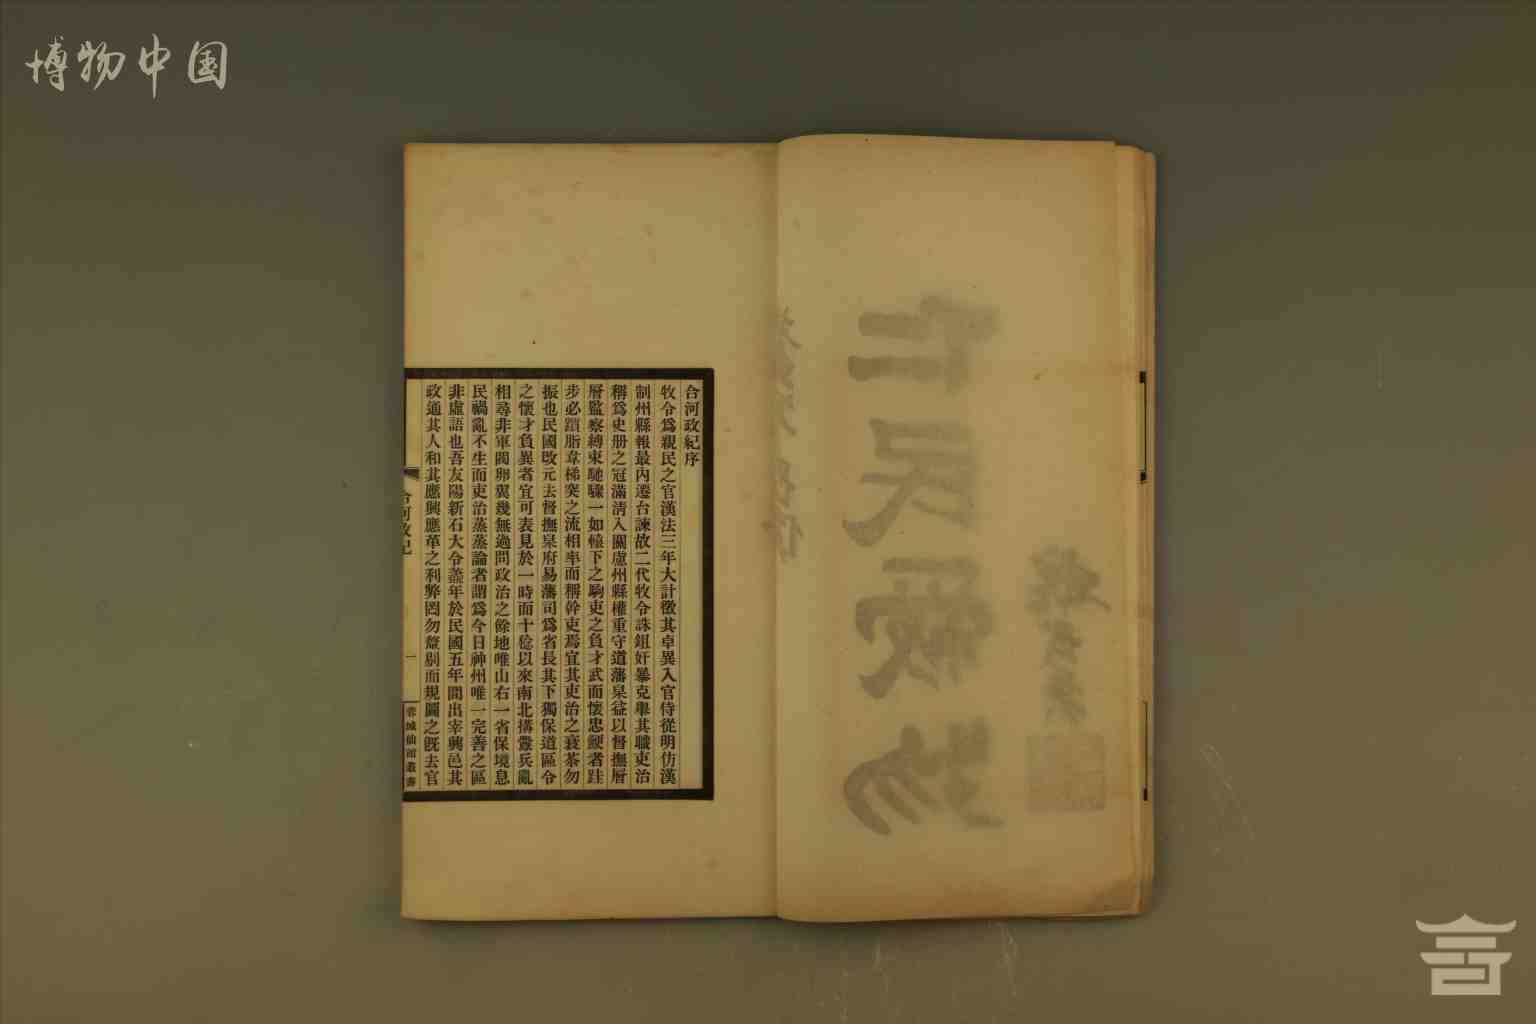 博物中国
仁民愛物
合河政紀序
牧令爲親民之官漢法三年大計徵其卓異入官侍從明仿漢
制州縣報最內遷台諫故二代牧令誅鉏奸暴克舉其職吏治
稱爲史册之冠滿清入關慮州縣權重守道藩臬益以督撫層
層監察縛束馳驟一如轅下之駒吏之負才武而懷忠鯁者跬
步必躓脂韋梯突之流相率而稱幹吏焉宜其吏治之衰苶勿
振也民國改元去督撫臬府易藩司爲省長其下獨保道區令
之懷才負異者宜可表見於一時而十稔以來南北搆釁兵亂
相尋非軍閥卵翼幾無過問政治之餘地唯山右一省保境息
民禍亂不生而吏治蒸蒸論者謂爲今日神州唯一完善之區
非虛語也吾友陽新石大令藎年於民國五年間出宰興邑其
政通其人和其應興應革之利弊罔勿釐剔而規圖之旣去官
合河政紀
一
蓉城仙館叢書